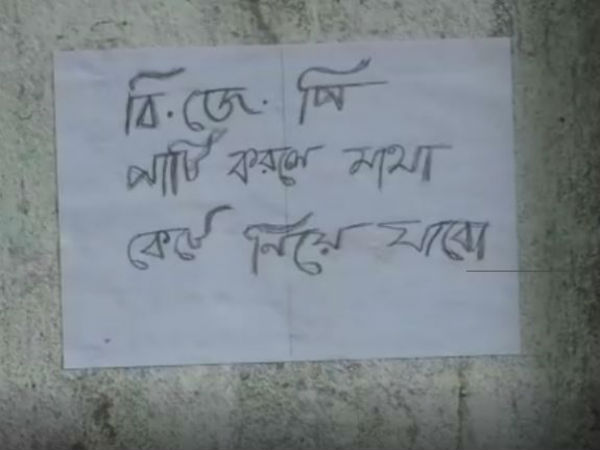 বি.জে. পি
পার্টি করলে মাথা
কেটে নিয়ে যাবো